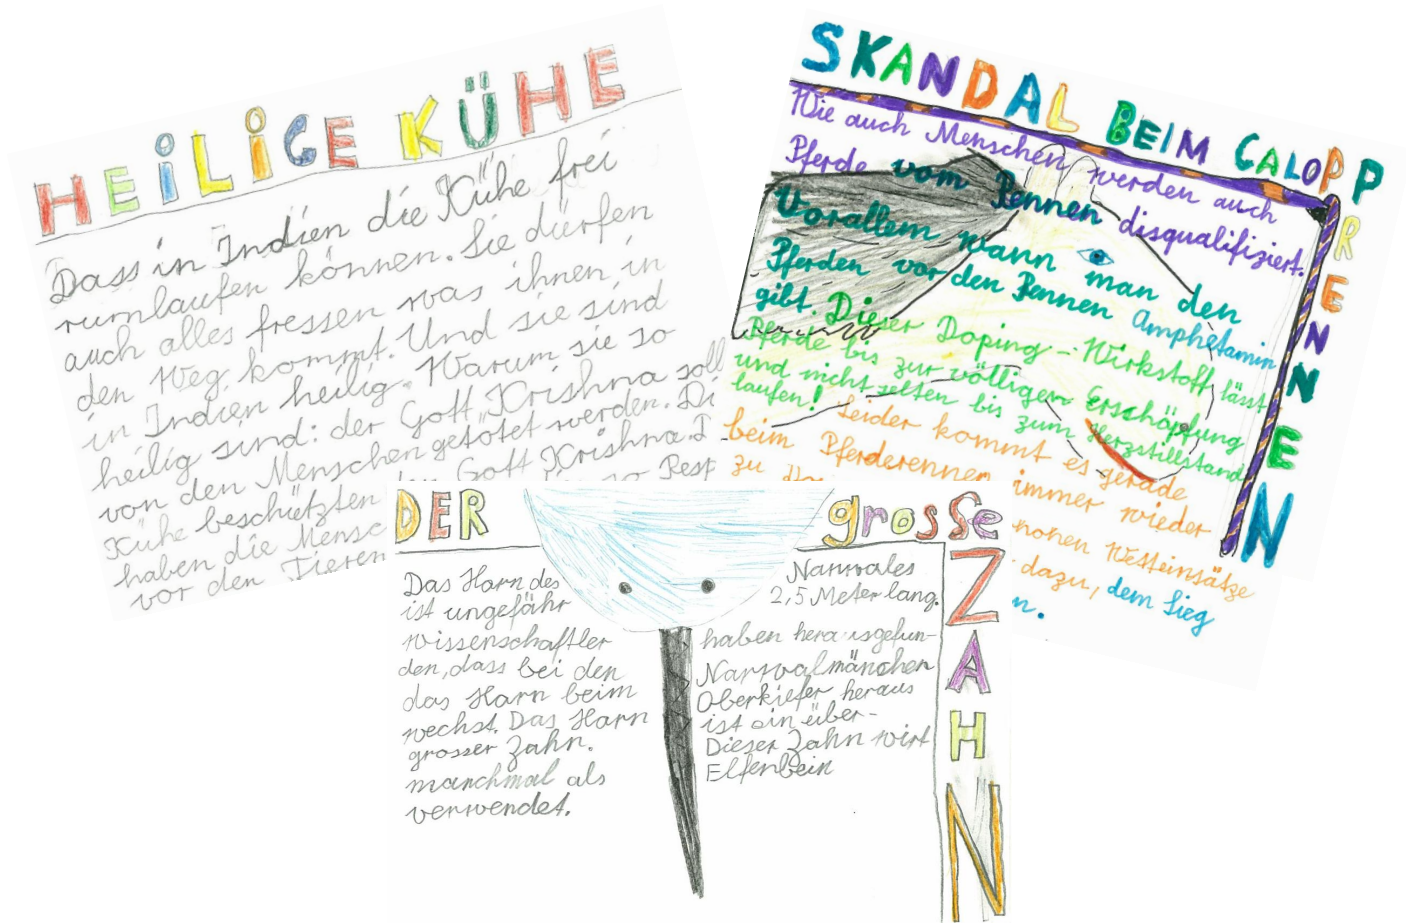 HEiLiGE KÜHE
Dass in Indien die Kühe frei
rumlaufen können. Sie dürfen
auch alles fressen was ihnen in
den Weg kommt. Und sie sind
in Indien heilig. Warum sie so
heilig sind: der Gott Krishna soll
von den Menschen getötet werden. Di
Kühe beschützten den Gott Krishna. D
haben die Mensc so Resp
vor den Tieren
SKANDAL BEIM GALOPP
RENNEN
Wie auch Menschen werden auch
Pferde vom Rennen disqualifiziert.
Vorallem wann man den
Pferden vor den Rennen Amphetamin
gibt. Dieser Doping-Wirkstoff lässt
Pferde bis zur völligen Erschöpfung
und nicht selten bis zum Herzstillstand
laufen! Leider kommt es gerade
beim Pferderennen immer wieder
zu hohen Wetteinsätze
dazu, dem Sieg
n.
DER grosse
ZAHN
Das Horn des Narwales
ist ungefähr 2,5 Meter lang.
wissenschaftler haben herausgefun-
den, dass bei den Narwalmänchen
das Horn beim Oberkiefer heraus
wechst. Das Horn ist ein über-
grosser Zahn. Dieser Zahn wirt
manchmal als Elfenbein
verwendet.